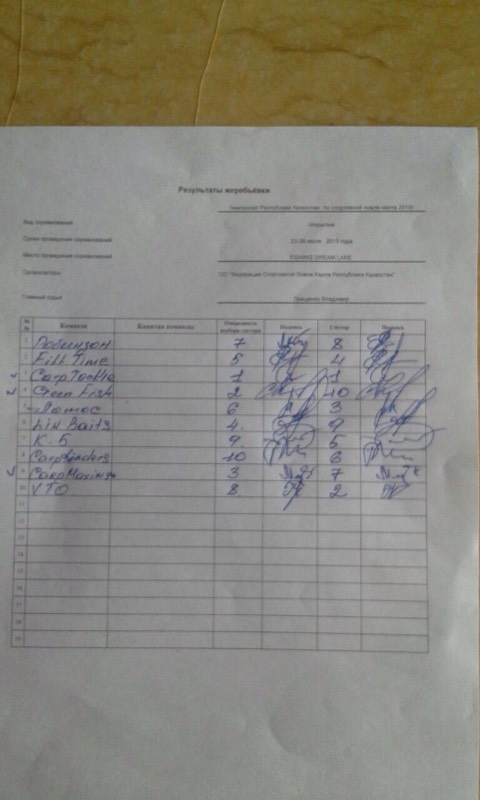 Результаты жеребьёвки
Чемпионат Республики Казахстан по спортивной ловле карпа 2015г
Вид соревнования открытые
Сроки проведения соревнований 23-26 июля 2015 года
Место проведения соревнований FISHING DREAM LAKE
Организаторы СО "Федерация Спортивной Ловли Карпа Республики Казахстан"
Главный судья Владимир
Команда Капитан команды Очередность выбора сектора Подпись Сектор Подпись
1 Робинзон 7 8
2 Fill Time 5 4
3 CarpTackle 1 1
4 Green Fish 2 10
5 Лотос 6 3
6 Lin Baits 4 9
7 К.Б 9 5
8 10 6
9 3 7
10 VTO 8 2
11
12
13
14
15
16
17
18
19